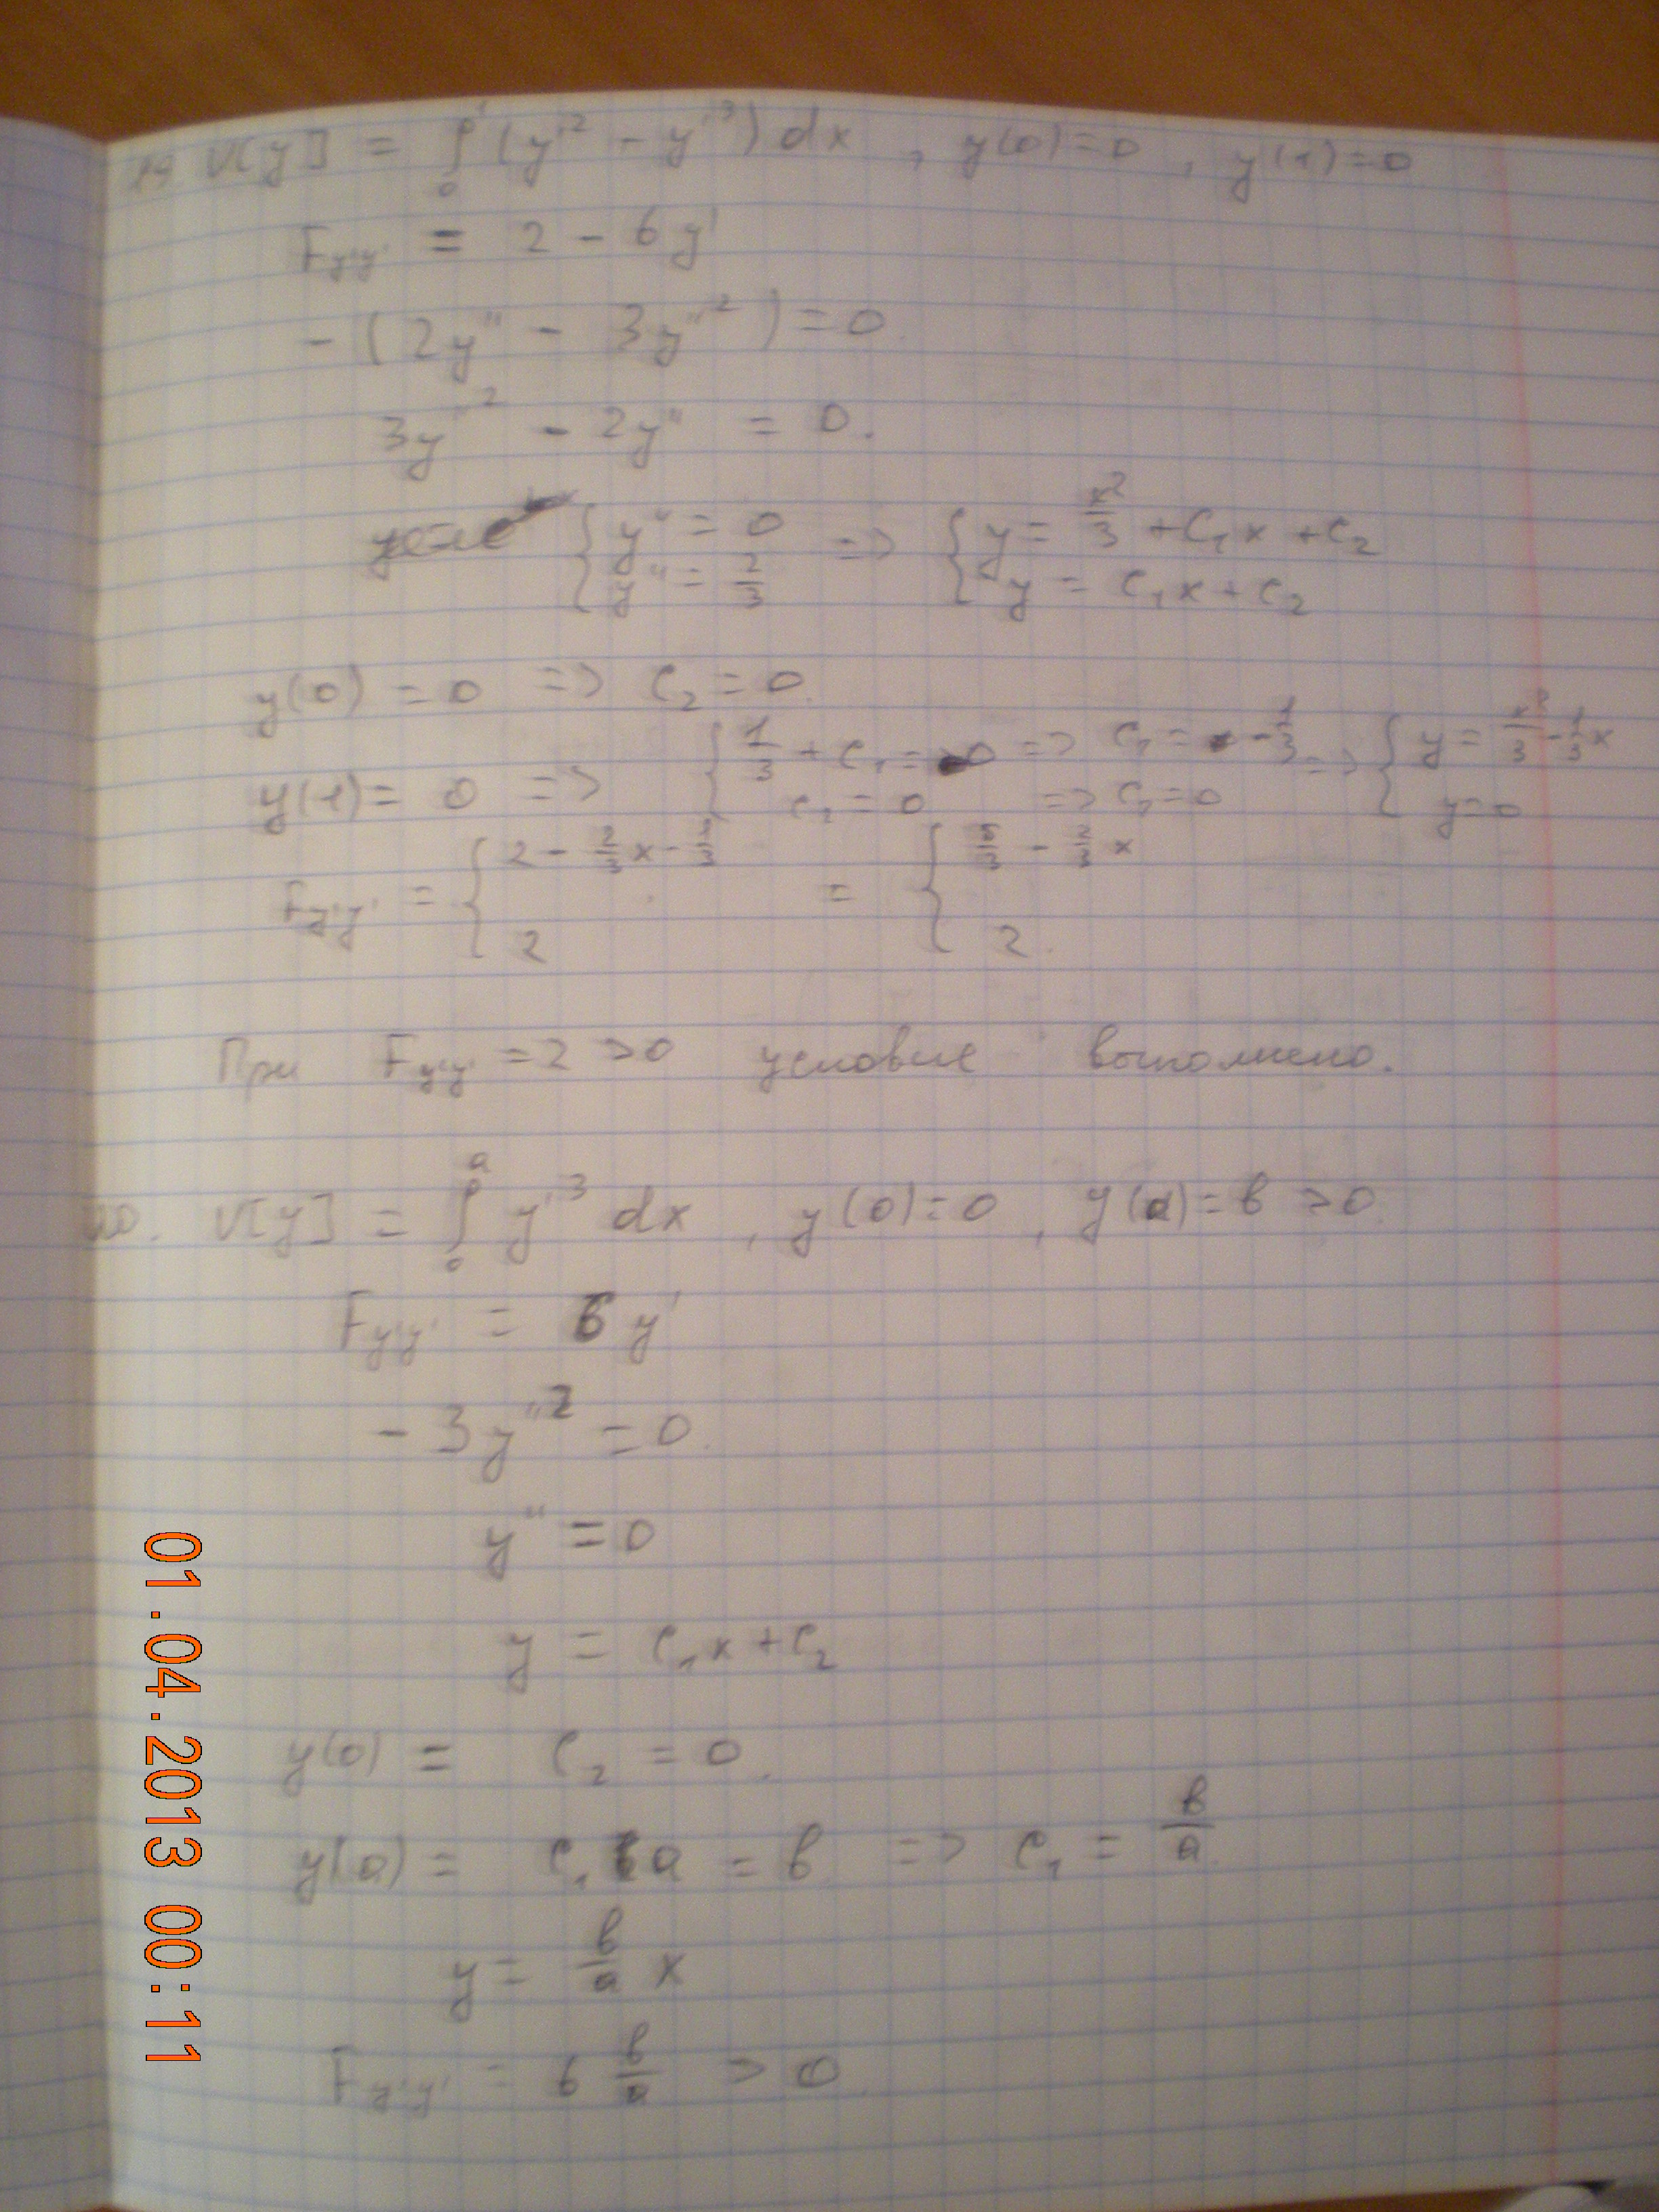 19 V[y] = ∫₀¹ (y'² - y'³) dx , y(0)=0 , y(1)=0
F_y'y' = 2 - 6y'
- (2y'' - 3y''²) = 0.
3y''² - 2y'' = 0.
{ y'' = 0 ; y'' = 2/3 => { y = x²/3 + C₁x + C₂ ; y = C₁x + C₂
y(0) = 0 => C₂ = 0.
y(1) = 0 => { 1/3 + C₁ = 0 => C₁ = -1/3 ; C₂ = 0 => C₁ = 0 => { y = x²/3 - 1/3 x ; y = 0
F_y'y' = { 2 - 2/3 x - 1/3 ; 2 = { 5/3 - 2/3 x ; 2.
При F_y'y' = 2 > 0 условие выполнено.
20. V[y] = ∫₀ᵃ y'³ dx , y(0)=0 , y(a)=b >0.
F_y'y' = 6y'
- 3y''² = 0.
y'' = 0
y = C₁x + C₂
y(0) = C₂ = 0.
y(a) = C₁a = b => C₁ = b/a.
y = b/a x
F_y'y' = 6 b/a > 0.
01.04.2013 00:11